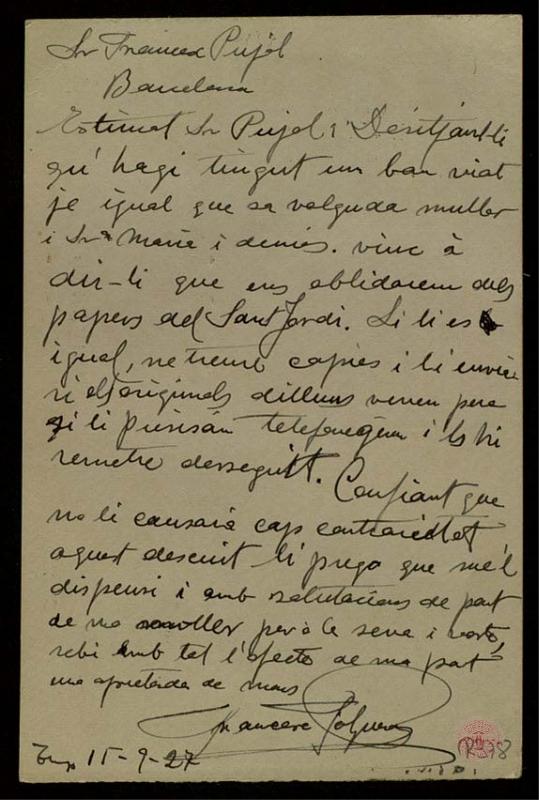 Sr Francesc Pujol
Barcelona
Estimat Sr Pujol: Desitjant-li
qu' hagi tingut un bon viat
je igual que sa volguda muller
i Sra Mare i demés. vinc à
dir-li que ens oblidarem dels
papers del Sant Jordi. Si li es
igual, ne treuré copies i li enviaré
els originals dilluns vinent pero
si li precisan telefonegim i ls hi
remetré desseguit. Confiant que
no li causará cap contrarietat
aquest descuit li prego que me'l
dispensi i amb salutacions de part
de ma muller per à la seva i
rebi amb tot l'afecte de ma part
una apretada de mans
Francesc
15-9-27